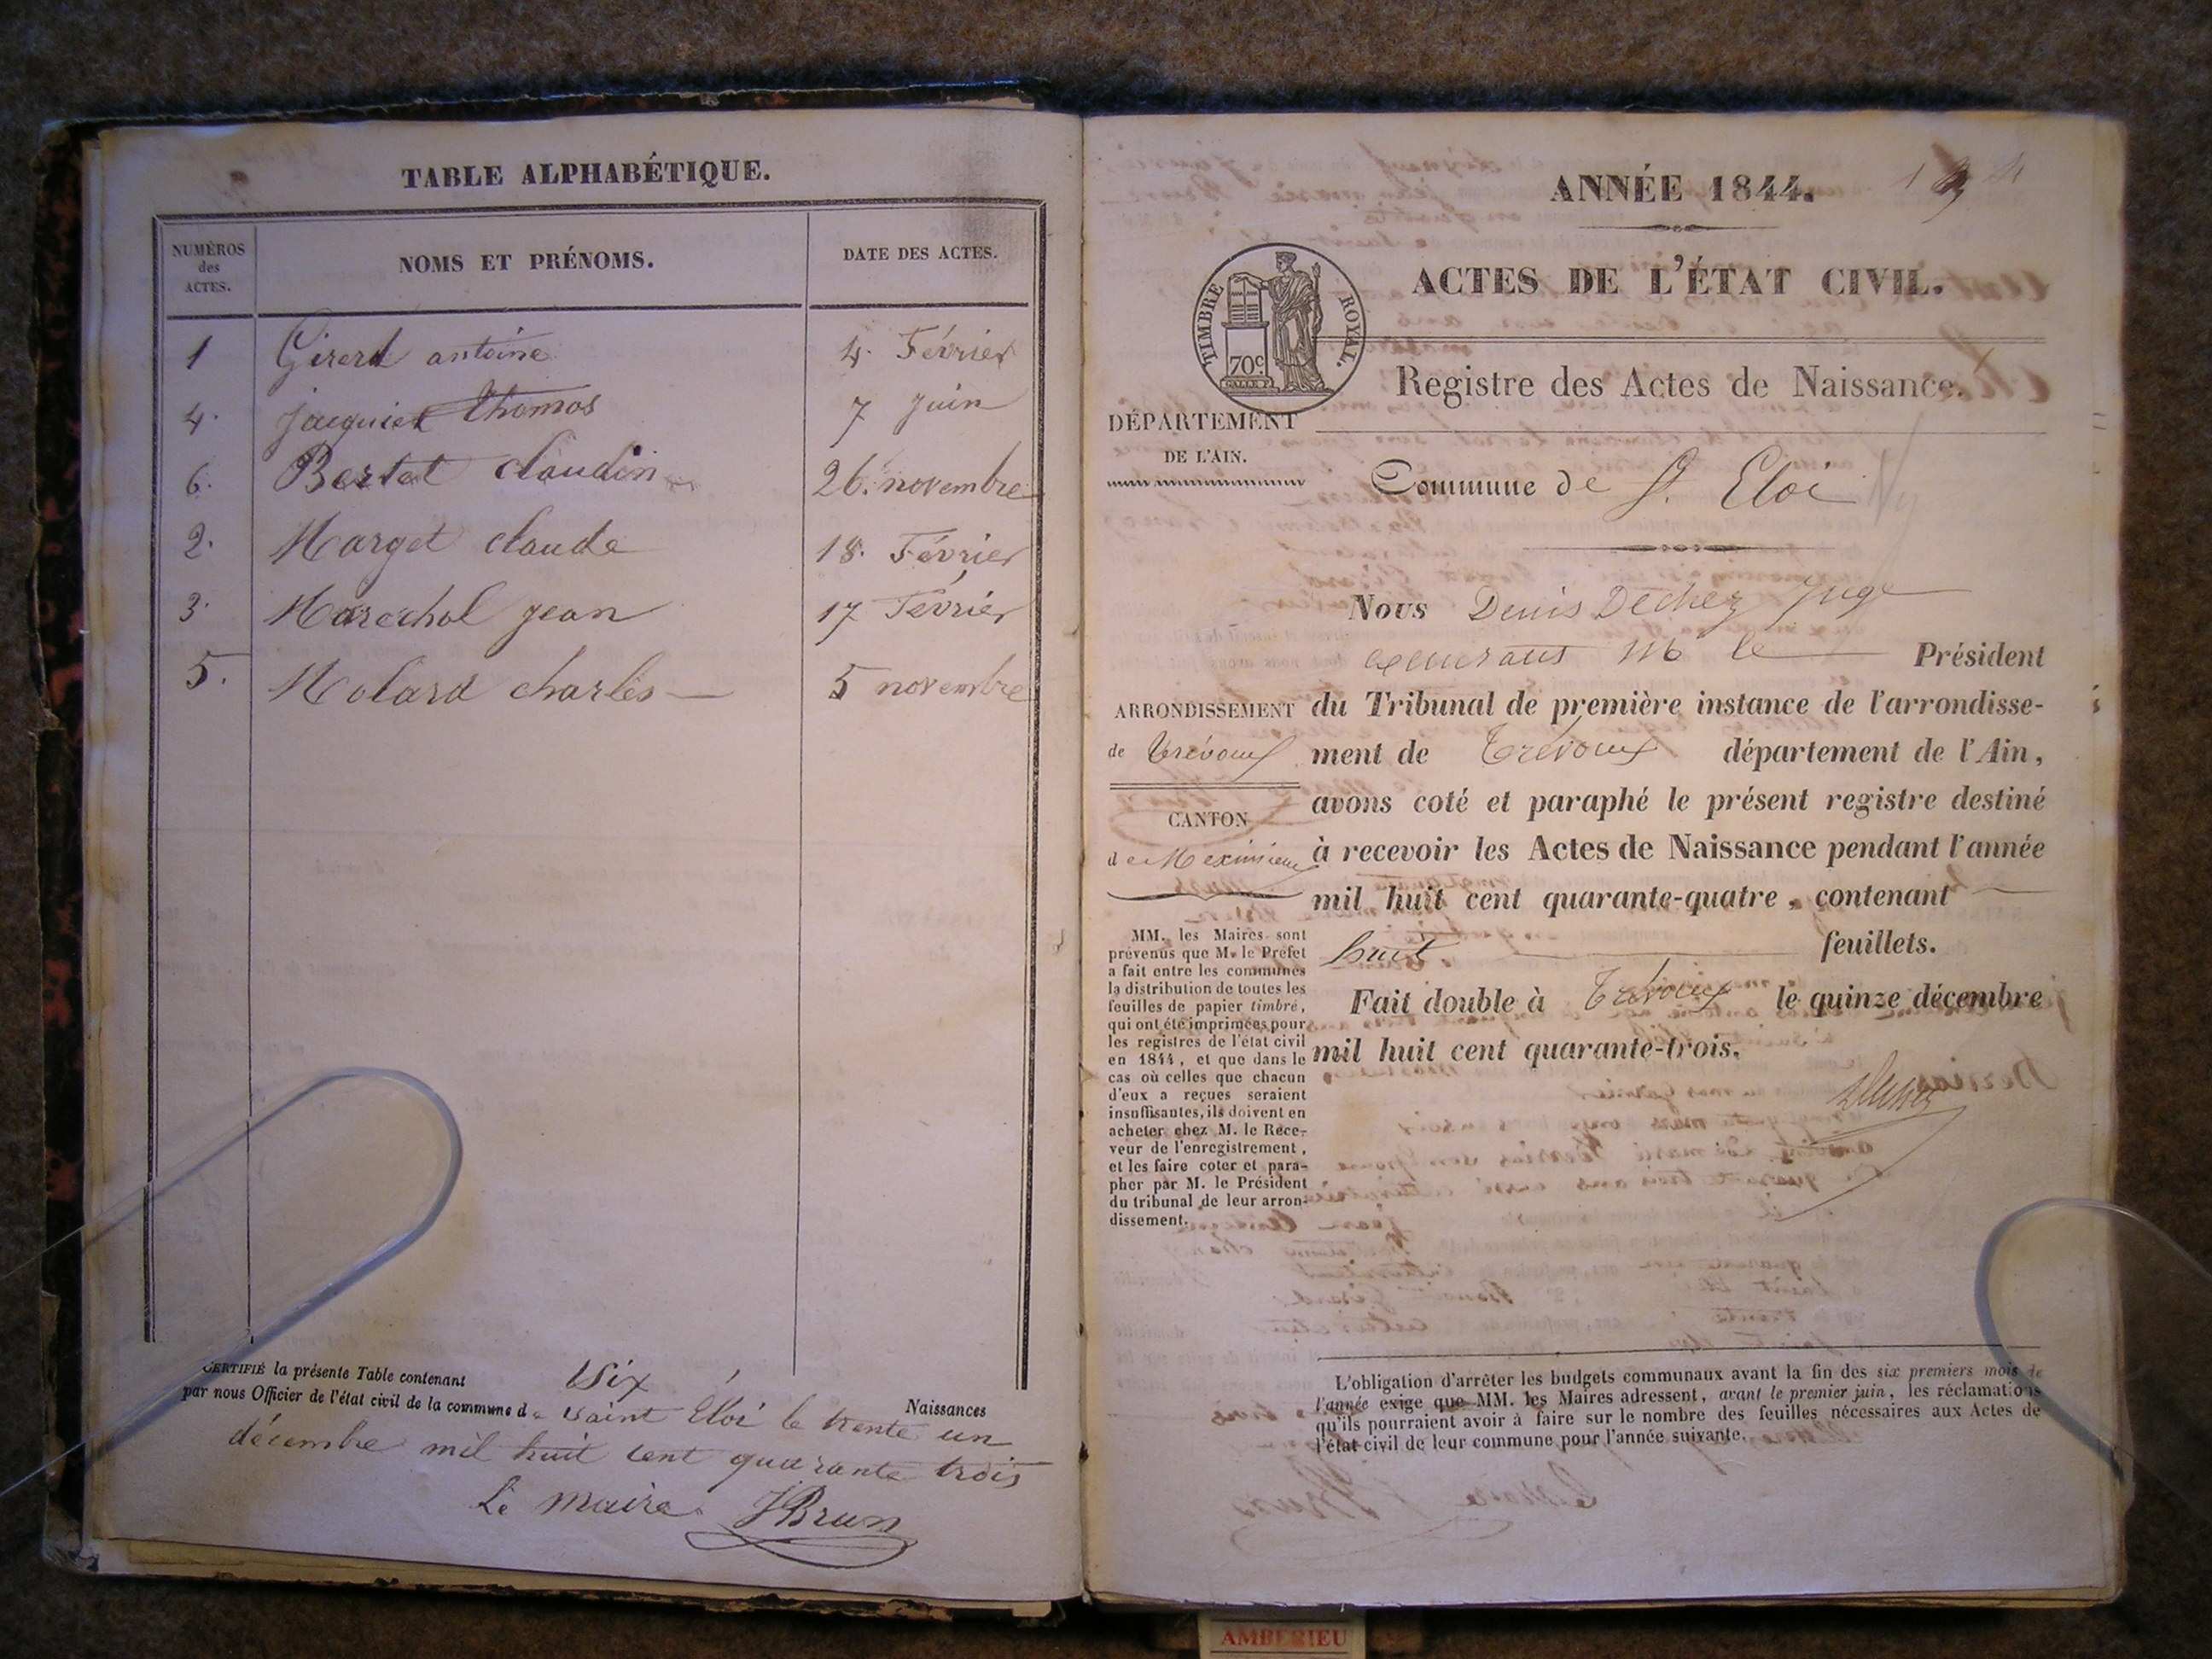 TABLE ALPHABÉTIQUE.
NUMÉROS des ACTES.
NOMS ET PRÉNOMS.
DATE DES ACTES.
1 Girerd antoine 4. Février
4. jacquier thomas 7 juin
6. Bertet claudin 26. novembre
2. Marget claude 18. Février
3. Marechal jean 17 Février
5. Molard charles 5 novembre
CERTIFIÉ la présente Table contenant Six Naissances
par nous Officier de l'état civil de la commune de Saint Eloi le trente un
décembre mil huit cent quarante trois
Le maire JBrun
ANNÉE 1844.
ACTES DE L'ÉTAT CIVIL.
TIMBRE ROYAL.
70c.
Registre des Actes de Naissance.
DÉPARTEMENT
DE L'AIN.
Commune de St. Eloi
Nous Denis Dechez Juge
Mr le Président
ARRONDISSEMENT
de Trévoux
CANTON
de Meximieux
du Tribunal de première instance de l'arrondisse-
ment de Trévoux département de l'Ain,
avons coté et paraphé le présent registre destiné
à recevoir les Actes de Naissance pendant l'année
mil huit cent quarante-quatre, contenant
huit feuillets.
Fait double à Trévoux le quinze décembre
mil huit cent quarante-trois.
MM. les Maires sont
prévenus que M. le Préfet
a fait entre les communes
la distribution de toutes les
feuilles de papier timbré,
qui ont été imprimées pour
les registres de l'état civil
en 1844, et que dans le
cas où celles que chacun
d'eux a reçues seraient
insuffisantes, ils doivent en
acheter chez M. le Rece-
veur de l'enregistrement,
et les faire coter et para-
pher par M. le Président
du tribunal de leur arron-
dissement.
L'obligation d'arrêter les budgets communaux avant la fin des six premiers mois de
l'année exige que MM. les Maires adressent, avant le premier juin, les réclamations
qu'ils pourraient avoir à faire sur le nombre des feuilles nécessaires aux Actes de
l'état civil de leur commune pour l'année suivante.
AMBERIEU